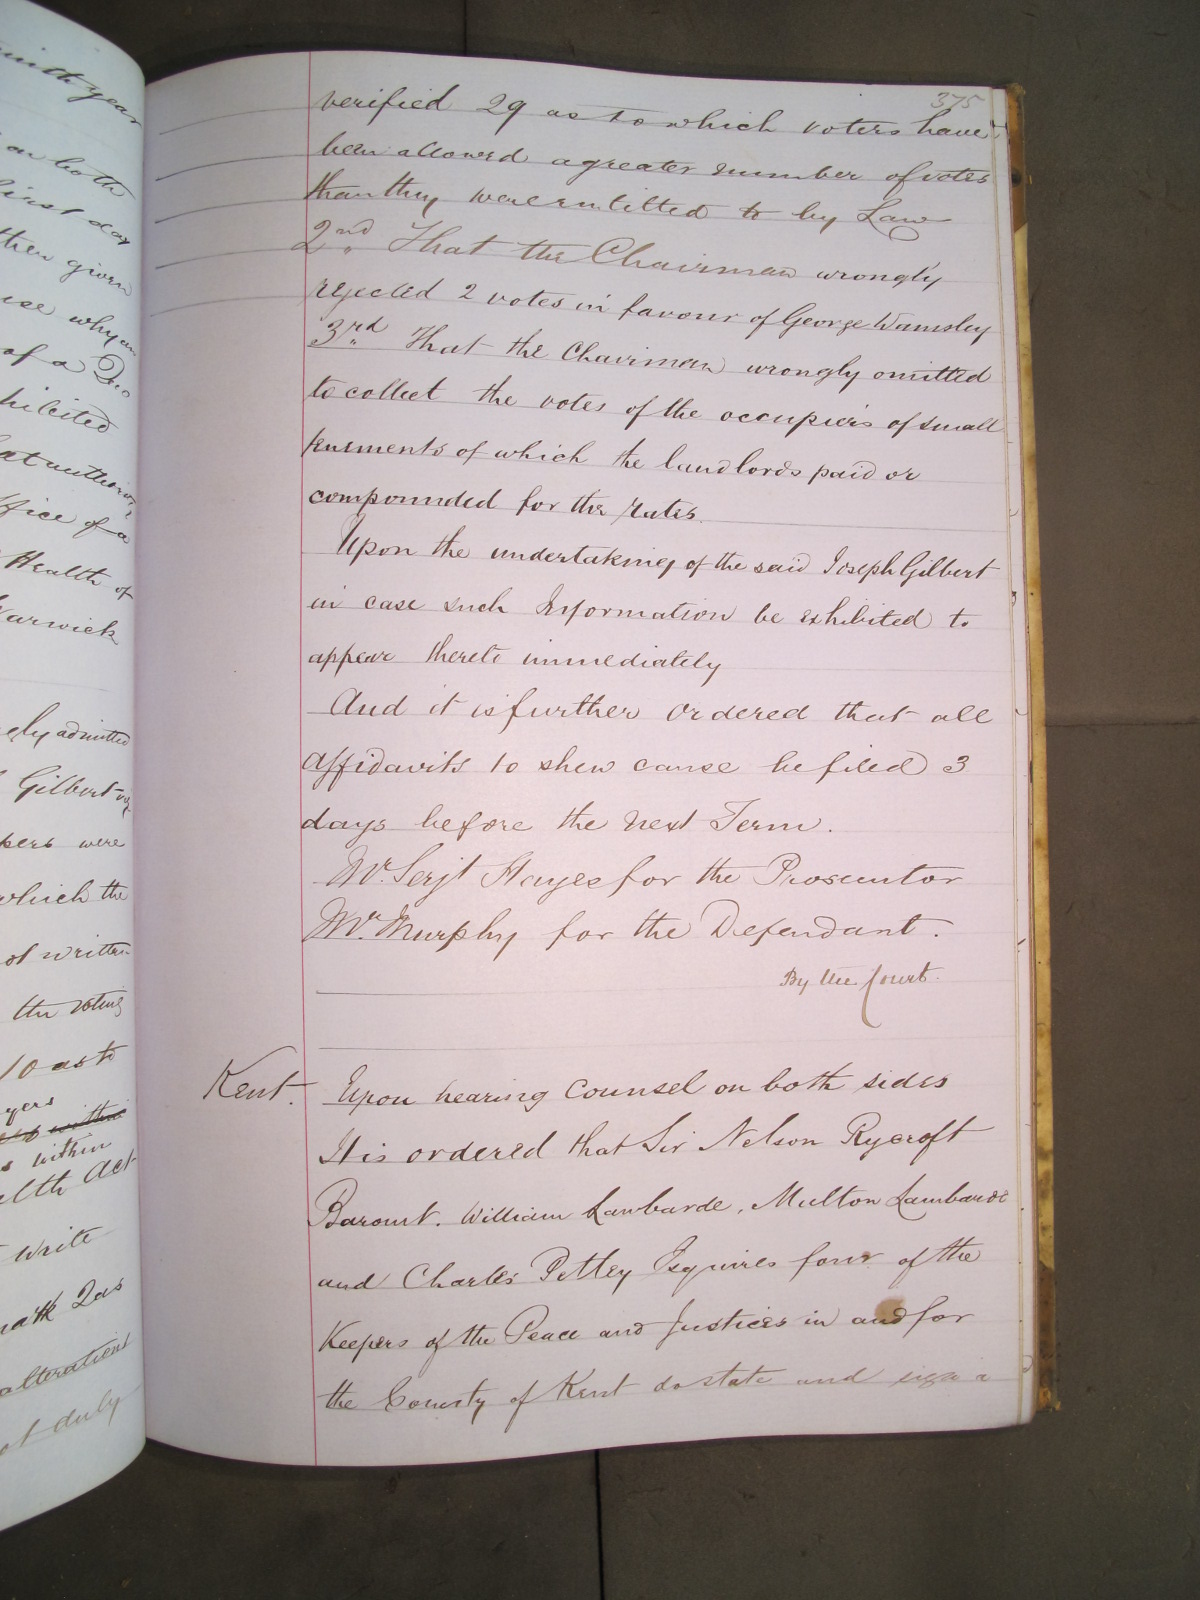 ninth year
on both
first day
then given
use why an
of a Quo
hibited
that authority
office of a
Health of
Warwick
ely admitted
Gilbert
pers were
which the
not written
the voting
10 as to
yers
within
s within
ealth Act
write
alteration
not duly
375
verified 29 as to which voters have
been allowed a greater number of votes
than they were entitled to by Law
2nd That the Chairman wrongly
rejected 2 votes in favour of George Wamsley
3rd That the Chairman wrongly omitted
to collect the votes of the occupiers of small
tenements of which the landlords paid or
compounded for the rates.
Upon the undertaking of the said Joseph Gilbert
in case such Information be exhibited to
appear thereto immediately
And it is further ordered that all
affidavits to shew cause be filed 3
days before the next Term.
Mr. Serjt Hayes for the Prosecutor
Mr. Murphy for the Defendant.
By the Court.
Kent. Upon hearing Counsel on both sides
It is ordered that Sir Nelson Rycroft
Baronet. William Lambarde, Multon Lambarde
and Charles Petley Esquires four of the
Keepers of the Peace and Justices in and for
the County of Kent do state and sign a